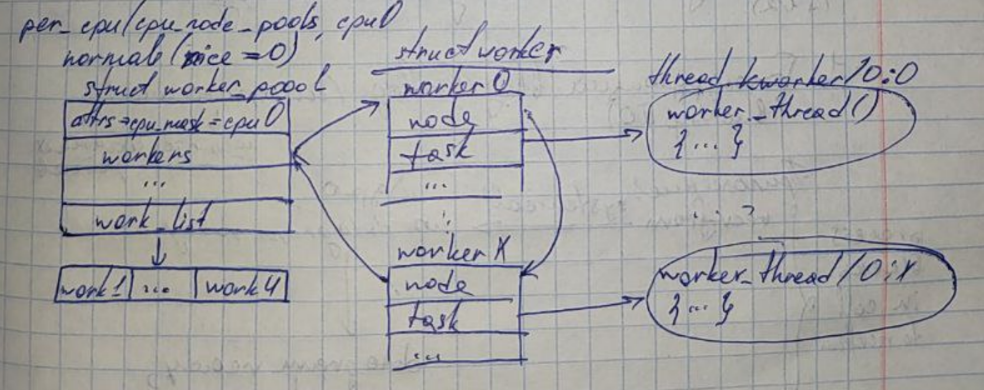 per_cpu/cpu_node_pools, cpu0
normal (nice = 0)
struct worker_poool
attrs→cpu_mask = cpu0
workers
...
work_list
work1 ... work4
struct worker
worker 0
node
task
...
worker X
node
task
...
thread kworker/0:0
worker_thread()
{ ... }
... ?
worker_thread/0:X
{ ... }